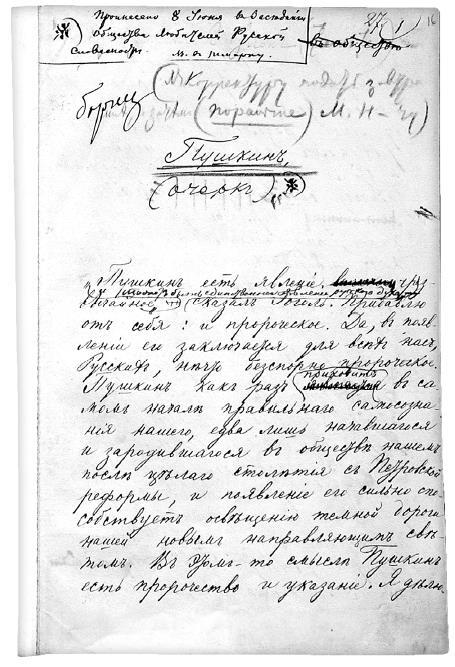 Произнесено 8 Июня в засѣданіи
Общества Любителей Русской
Словесности.
27
1
16
въ общество
Корректуру
М. Н-
Пушкинъ,
(очеркъ)
„Пушкинъ есть явленіе чрез
и, можетъ быть, единственное явленіе русскаго духа,
вычайное, сказалъ Гоголь. Прибавлю
отъ себя: и пророческое. Да, въ появ
леніи его заключается для всѣхъ насъ,
Русскихъ, нѣчто безспорно пророческое.
Пушкинъ какъ разъ приходитъ въ са
момъ началѣ правильнаго самосозна
нія нашего, едва лишь начавшагося
и зародившагося въ обществѣ нашемъ
послѣ цѣлаго столѣтія съ Петровской
реформы, и появленіе его сильно спо
собствуетъ освѣщенію темной дороги
нашей новымъ направляющимъ свѣ
томъ. Въ этомъ-то смыслѣ Пушкинъ
есть пророчество и указаніе. Я дѣлю